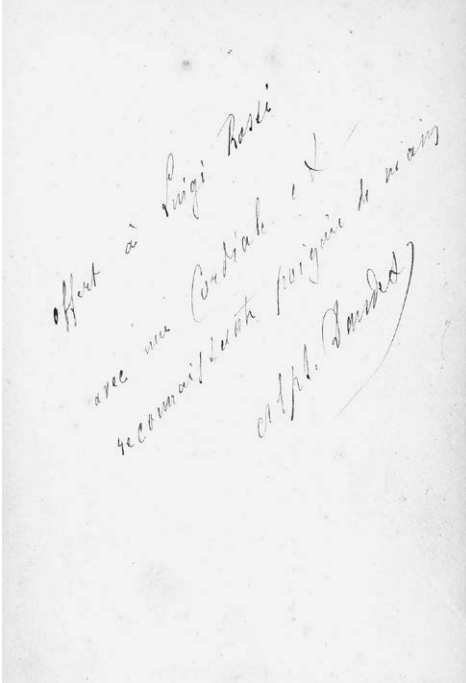 offert à Luigi Rossi
avec une Cordiale et
reconnaissante poignée de main
Alph. Daudet